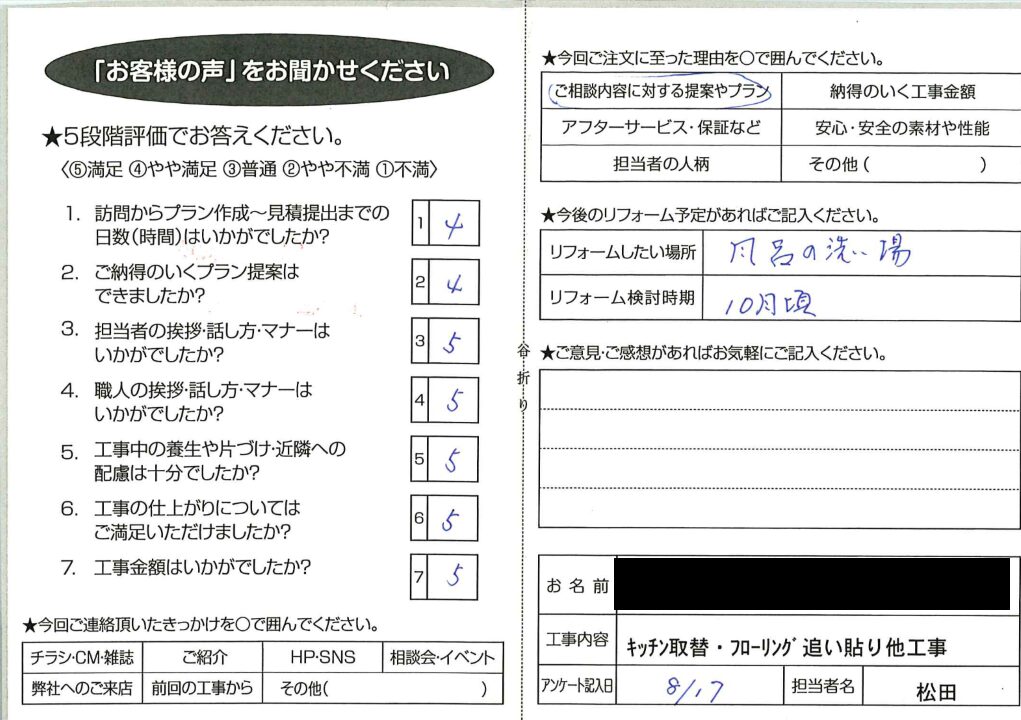 「お客様の声」をお聞かせください
★5段階評価でお答えください。
〈⑤満足 ④やや満足 ③普通 ②やや不満 ①不満〉
1. 訪問からプラン作成～見積提出までの
日数(時間)はいかがでしたか?
1 4
2. ご納得のいくプラン提案は
できましたか?
2 4
3. 担当者の挨拶・話し方・マナーは
いかがでしたか?
3 5
4. 職人の挨拶・話し方・マナーは
いかがでしたか?
4 5
5. 工事中の養生や片づけ・近隣への
配慮は十分でしたか?
5 5
6. 工事の仕上がりについては
ご満足いただけましたか?
6 5
7. 工事金額はいかがでしたか?
7 5
★今回ご連絡頂いたきっかけを〇で囲んでください。
チラシ・CM・雑誌 ご紹介 HP・SNS 相談会・イベント
弊社へのご来店 前回の工事から その他( )
谷折り
★今回ご注文に至った理由を〇で囲んでください。
ご相談内容に対する提案やプラン 納得のいく工事金額
アフターサービス・保証など 安心・安全の素材や性能
担当者の人柄 その他 ( )
★今後のリフォーム予定があればご記入ください。
リフォームしたい場所 風呂の洗い場
リフォーム検討時期 10月頃
★ご意見・ご感想があればお気軽にご記入ください。
お名前
工事内容 ｷｯﾁﾝ取替・ﾌﾛｰﾘﾝｸﾞ追い貼り他工事
アンケート記入日 8/17 担当者名 松田